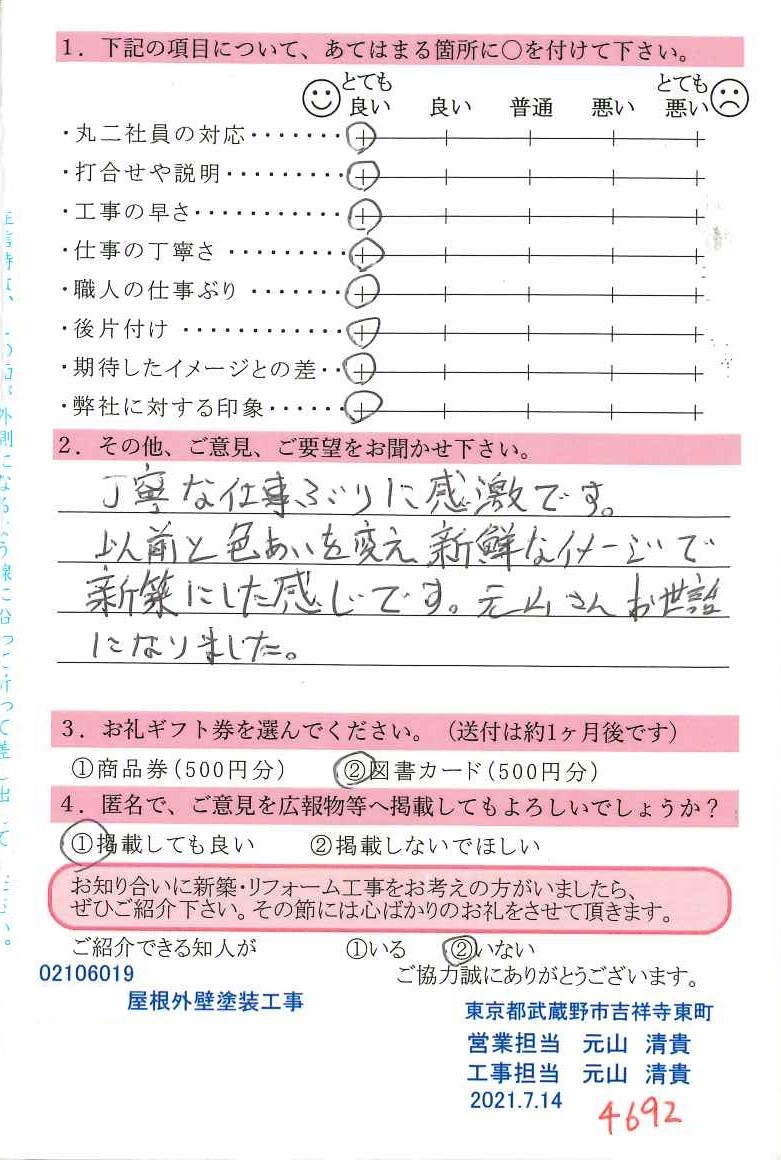 1．下記の項目について、あてはまる箇所に○を付けて下さい。
とても良い 良い 普通 悪い とても悪い
・丸二社員の対応・・・・・・・
・打合せや説明・・・・・・・・・
・工事の早さ・・・・・・・・・・・
・仕事の丁寧さ・・・・・・・・・
・職人の仕事ぶり・・・・・・・・
・後片付け・・・・・・・・・・・・
・期待したイメージとの差・・
・弊社に対する印象・・・・・・
2．その他、ご意見、ご要望をお聞かせ下さい。
丁寧な仕事ぶりに感激です。
以前と色あいを変え 新鮮なイメージで
新築にした感じです。元山さんお世話
になりました。
3．お礼ギフト券を選んでください。（送付は約1ヶ月後です）
①商品券(500円分) ②図書カード(500円分)
4．匿名で、ご意見を広報物等へ掲載してもよろしいでしょうか？
①掲載しても良い ②掲載しないでほしい
お知り合いに新築・リフォーム工事をお考えの方がいましたら、
ぜひご紹介下さい。その節には心ばかりのお礼をさせて頂きます。
ご紹介できる知人が ①いる ②いない
ご協力誠にありがとうございます。
02106019
屋根外壁塗装工事
東京都武蔵野市吉祥寺東町
営業担当 元山 清貴
工事担当 元山 清貴
2021.7.14
4692